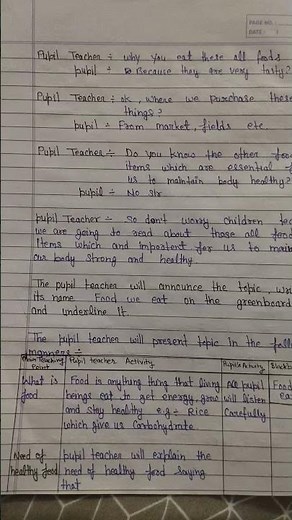 PAGE NO.
DATE
Pupil Teacher ÷ why you eat these all foods
pupil ÷ Because they are very tasty?
Pupil Teacher : ok, where we purchase these
things?
pupil ÷ From market, fields etc.
Pupil Teacher ÷ Do you know the other food
items which are essential
us to maintain body healthy?
pupil ÷ No sir
pupil Teacher ÷ So don't worry children
we are going to read about those all food
Items which and Important for us to
our body strong and healthy
The pupil teacher will announce the topic,
its name Food we eat on the greenboard
and underline it.
The pupil teacher will present topic in the
manner ÷
Teaching Point
Pupil teacher Activity
Pupil's Activity
What is food
Food is anything thing that living
beings eat to get energy, grow
and stay healthy e.g ÷ Rice
which give us Carbohydrate
All pupil
will listen
Carefully
Food
Need of
healthy food
pupil teacher will explain the
need of healthy food saying
that